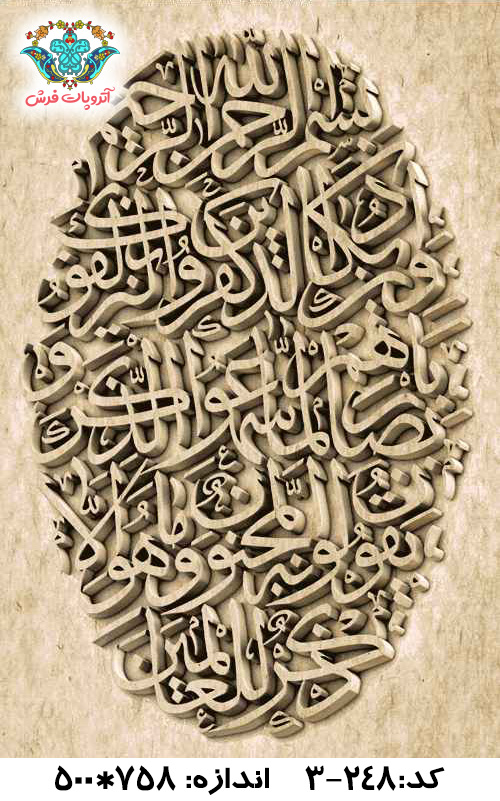 آتروپات فرش
بسم الله الرحمن الرحيم
وإن يكاد الذين كفروا ليزلقونك
بأبصارهم لما سمعوا الذكر و
يقولون إنه لمجنون وما هو إلا
ذكر للعالمين
کد:۲۴۸-۳ اندازه: ۷۵۸*۵۰۰